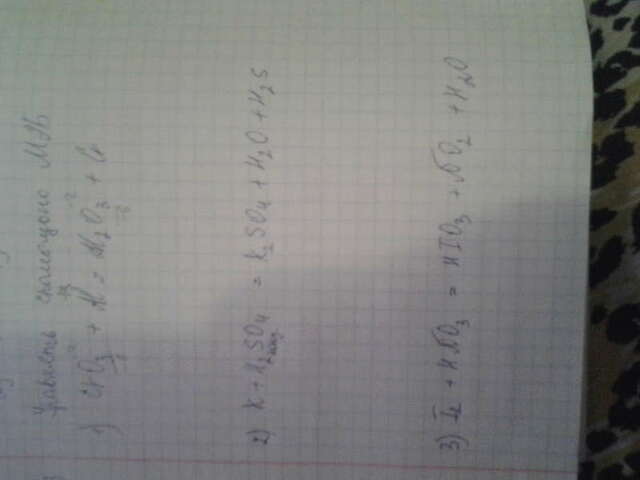 Уравнять с помощью МЭБ
1) CrO₃ + Al = Al₂O₃ + Cr
2) K + H₂SO₄ конц = K₂SO₄ + H₂O + H₂S
3) I₂ + HNO₃ = HIO₃ + NO₂ + H₂O